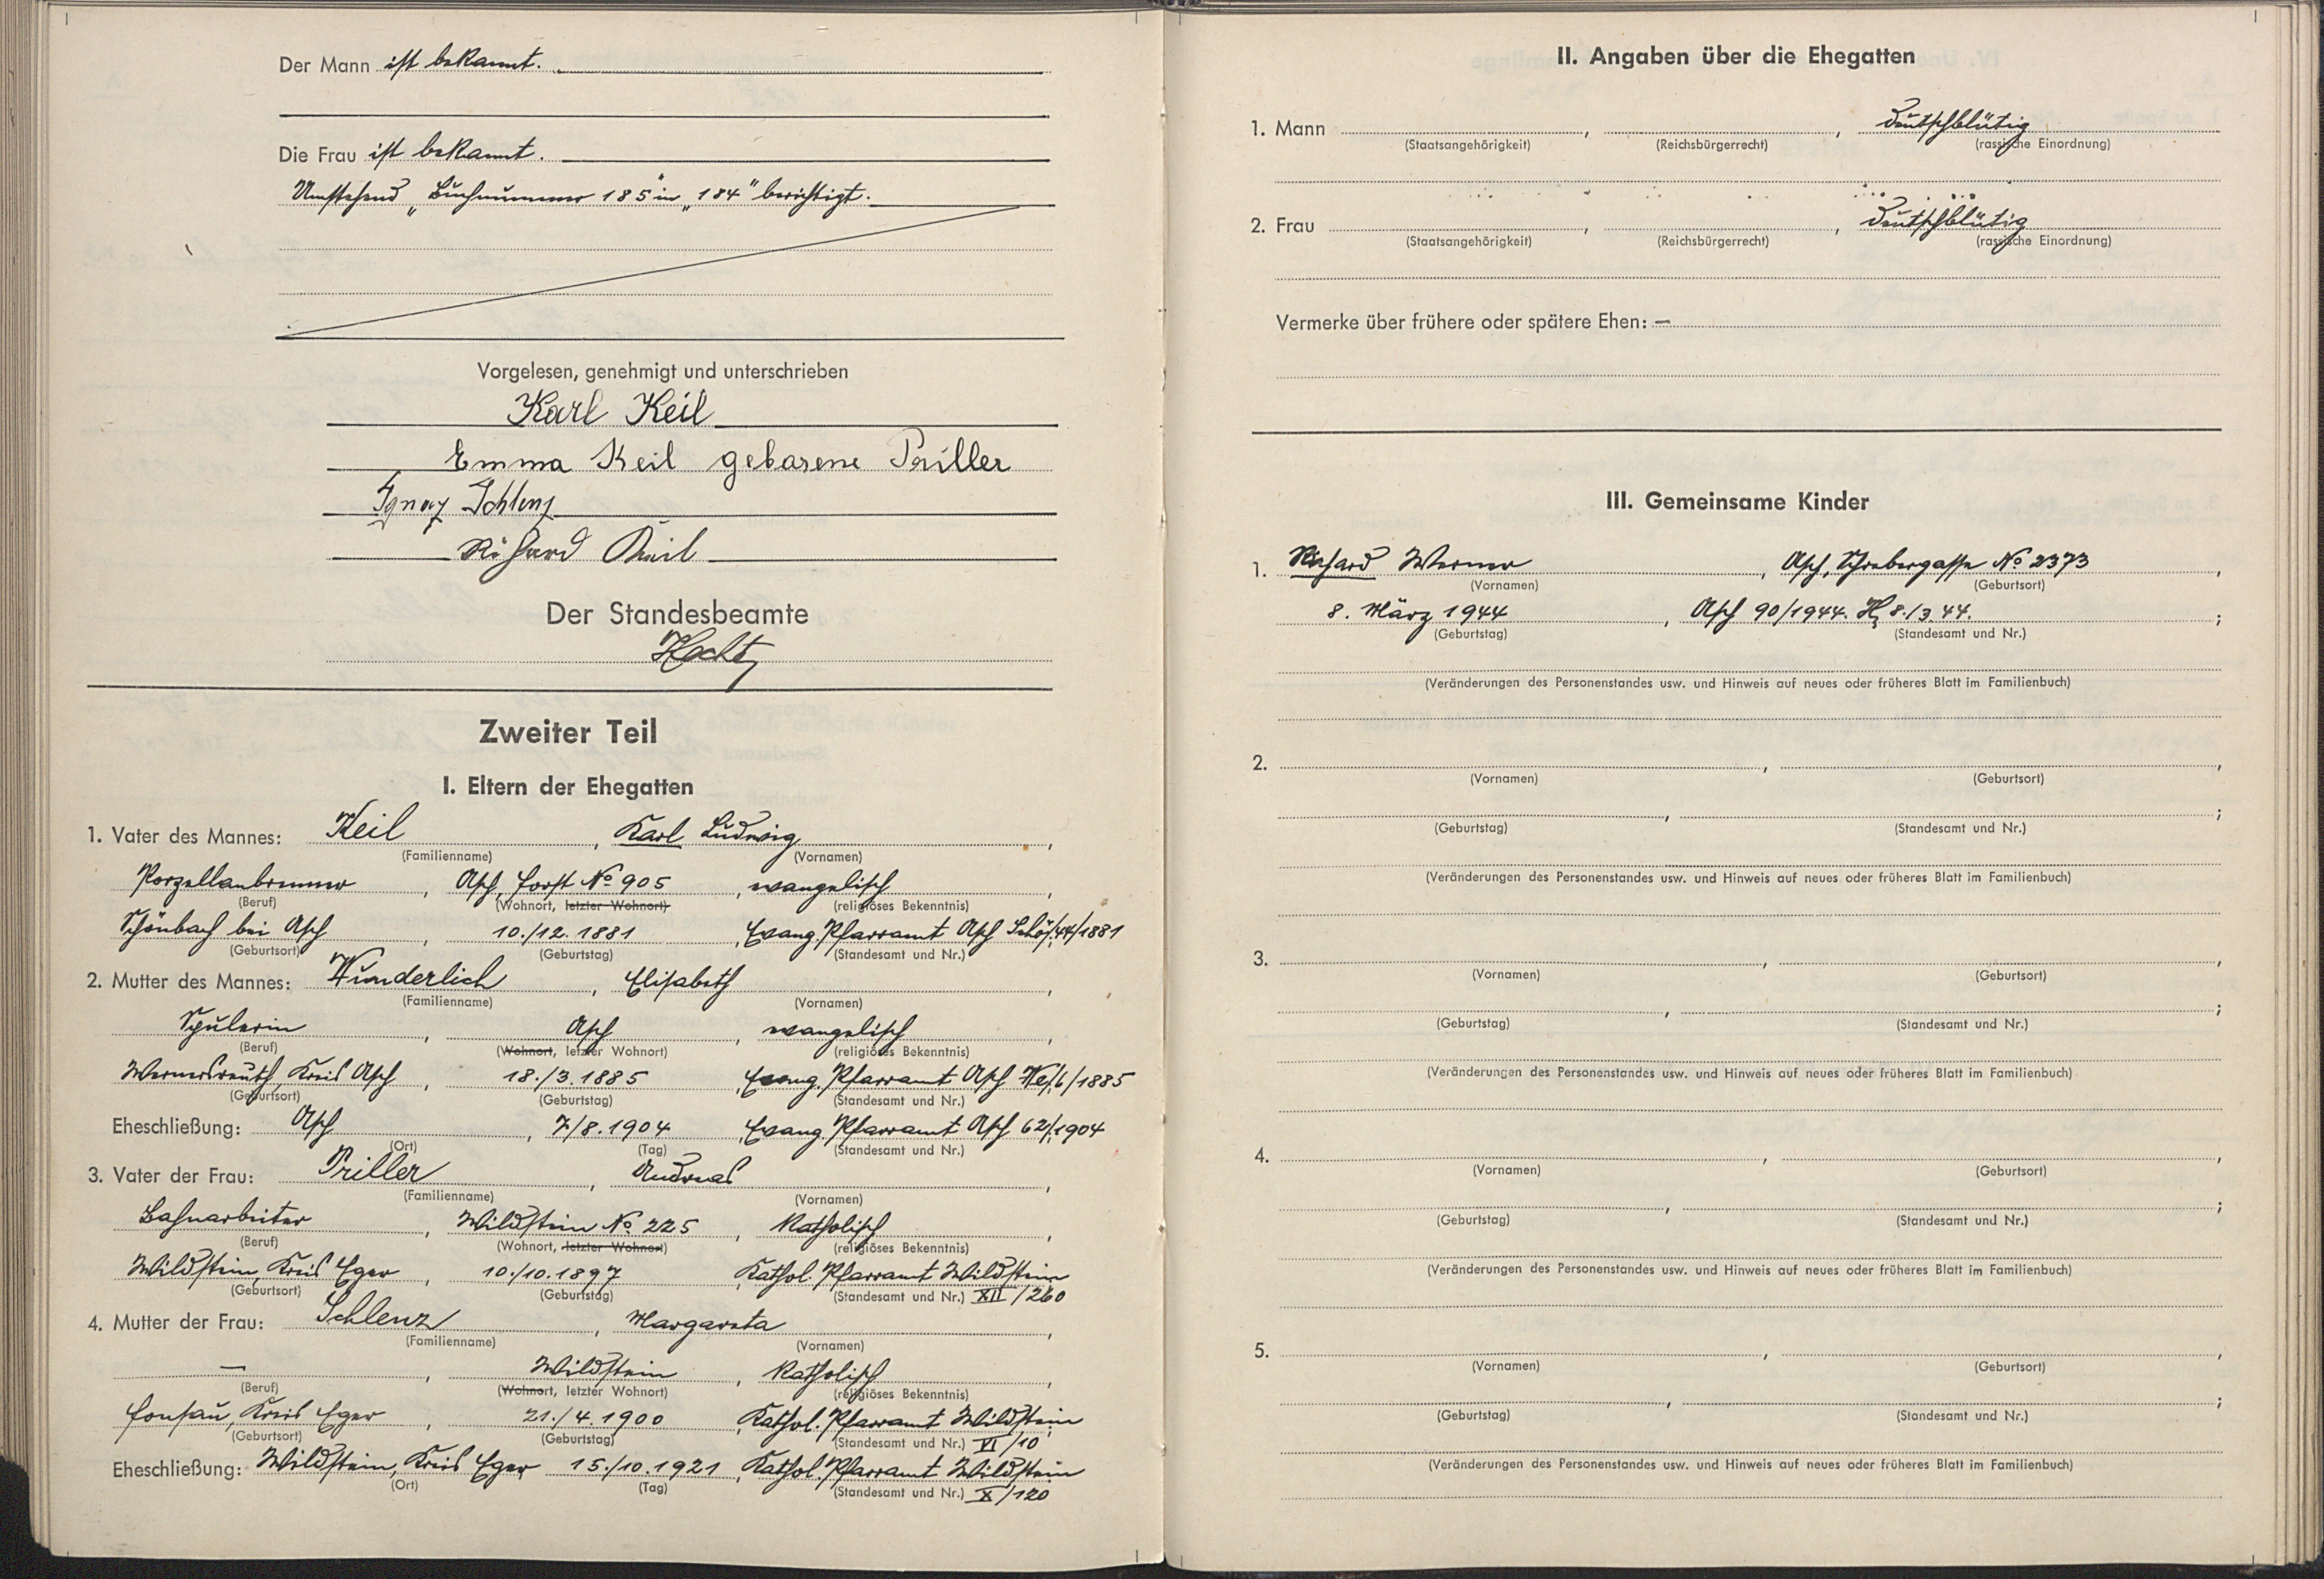 Der Mann ist bekannt.
Die Frau ist bekannt.
Umstehend „Buchnummer 185" in „184" berichtigt.
Vorgelesen, genehmigt und unterschrieben
Karl Keil
Emma Keil geborene Priller
Ignaz Schlenz
Richard Keil
Der Standesbeamte
Zweiter Teil
I. Eltern der Ehegatten
1. Vater des Mannes: Keil, Karl Ludwig,
(Familienname) (Vornamen)
Porzellanbrenner, Asch, Forst No 905, evangelisch,
(Beruf) (Wohnort, letzter Wohnort) (religiöses Bekenntnis)
Schönbach bei Asch, 10./12. 1881, Evang. Pfarramt Asch Schö/44/1881
(Geburtsort) (Geburtstag) (Standesamt und Nr.)
2. Mutter des Mannes: Wunderlich, Elisabeth,
(Familienname) (Vornamen)
Spulerin, Asch, evangelisch,
(Beruf) (Wohnort, letzter Wohnort) (religiöses Bekenntnis)
Wernersreuth, Kreis Asch, 18./3. 1885, Evang. Pfarramt Asch We/6/1885
(Geburtsort) (Geburtstag) (Standesamt und Nr.)
Eheschließung: Asch, 7/8. 1904, Evang. Pfarramt Asch 62/1904
(Ort) (Tag) (Standesamt und Nr.)
3. Vater der Frau: Priller, Andreas,
(Familienname) (Vornamen)
Bahnarbeiter, Wildstein No 225, katholisch,
(Beruf) (Wohnort, letzter Wohnort) (religiöses Bekenntnis)
Wildstein, Kreis Eger, 10./10. 1897, Kathol. Pfarramt Wildstein
(Geburtsort) (Geburtstag) (Standesamt und Nr.) XII/260
4. Mutter der Frau: Schlenz, Margareta,
(Familienname) (Vornamen)
—, Wildstein, katholisch,
(Beruf) (Wohnort, letzter Wohnort) (religiöses Bekenntnis)
Fonsau, Kreis Eger, 21./4. 1900, Kathol. Pfarramt Wildstein
(Geburtsort) (Geburtstag) (Standesamt und Nr.) VI/10
Eheschließung: Wildstein, Kreis Eger 15./10. 1921, Kathol. Pfarramt Wildstein
(Ort) (Tag) (Standesamt und Nr.) X/120
II. Angaben über die Ehegatten
1. Mann , , deutschblütig
(Staatsangehörigkeit) (Reichsbürgerrecht) (rassische Einordnung)
2. Frau , , deutschblütig
(Staatsangehörigkeit) (Reichsbürgerrecht) (rassische Einordnung)
Vermerke über frühere oder spätere Ehen: —
III. Gemeinsame Kinder
1. Richard Werner, Asch, Schrebergasse No 2373,
(Vornamen) (Geburtsort)
8. März 1944, Asch 90/1944. 8./3. 44.;
(Geburtstag) (Standesamt und Nr.)
(Veränderungen des Personenstandes usw. und Hinweis auf neues oder früheres Blatt im Familienbuch)
2. , ,
(Vornamen) (Geburtsort)
, ;
(Geburtstag) (Standesamt und Nr.)
(Veränderungen des Personenstandes usw. und Hinweis auf neues oder früheres Blatt im Familienbuch)
3. , ,
(Vornamen) (Geburtsort)
, ;
(Geburtstag) (Standesamt und Nr.)
(Veränderungen des Personenstandes usw. und Hinweis auf neues oder früheres Blatt im Familienbuch)
4. , ,
(Vornamen) (Geburtsort)
, ;
(Geburtstag) (Standesamt und Nr.)
(Veränderungen des Personenstandes usw. und Hinweis auf neues oder früheres Blatt im Familienbuch)
5. , ,
(Vornamen) (Geburtsort)
, ;
(Geburtstag) (Standesamt und Nr.)
(Veränderungen des Personenstandes usw. und Hinweis auf neues oder früheres Blatt im Familienbuch)